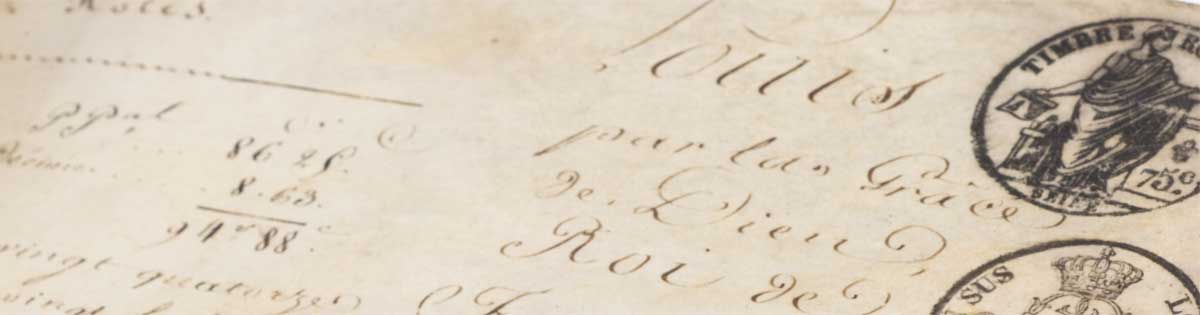 Roles.
ppal 86 25.
8.63.
94 88
vingt quatorze
vingt
Louis
par la Grâce
de Dieu
Roi de
TIMBRE
75c.
SEINE
SUS